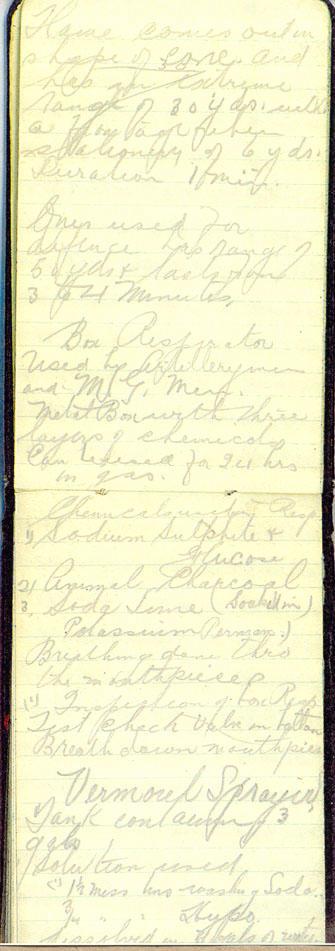 Flame comes out in
shape of cone and
has an extreme
range of 30 yds. with
a frontage when
stationery of 6 yds.
Duration 1 min.
Ones used for
defence has range of
50 yds & lasts from
3 to 4 Minutes.
Box Respirator
Used by Artillerymen
and M. G. Men.
Metal Box with three
layers of chemicals
Can be used for 24 hrs
in gas.
Chemicals used in Resp
1) Sodium Sulphite &
Glucose
2) Animal Charcoal
3 Soda Lime (Soaked in)
Potassium Perman.)
Breathing done thro
the mouthpiece
(1) Inspection of box Resp
Test check valve on bottom
Breath down mouthpiece
Vermorel Sprayer
1) Tank containing 3
gals
Solution used
(1) 1½ washing Soda.
3/4 " " " Hypo.
dissolved in of water